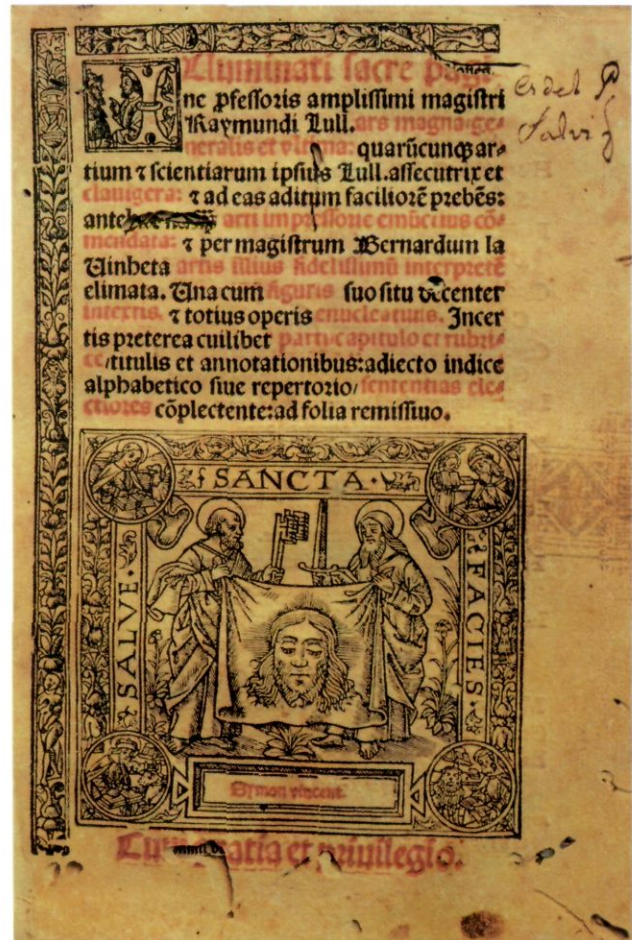 Illuminati sacre pa
ne ꝓfessoris amplissimi magistri
Raymundi Lull. ars magna ge⸗
neralis et vltima: quarūcunqꝫ ar⸗
tium ⁊ scientiarum ipsius Lull. assecutrix et
clauigera: ⁊ ad eas aditum faciliorē prebēs:
ante arti impressorie emūctius cō⸗
mendata: ⁊ per magistrum Bernardum la
Uinheta artis illius fidelissimū interpretē
elimata. Una cum figuris suo situ decenter
intextis. ⁊ totius operis enucleatiuis. Incer
tis preterea cuilibet parti capitulo et rubri⸗
ce/titulis et annotationibus: adiecto indice
alphabetico siue repertorio/sententias ele⸗
ctiores cōplectente: ad folia remissiuo.
es del P
Salvi
SANCTA
SALVE
FACIES
Symon vincent.
Cum gratia et priuilegio.